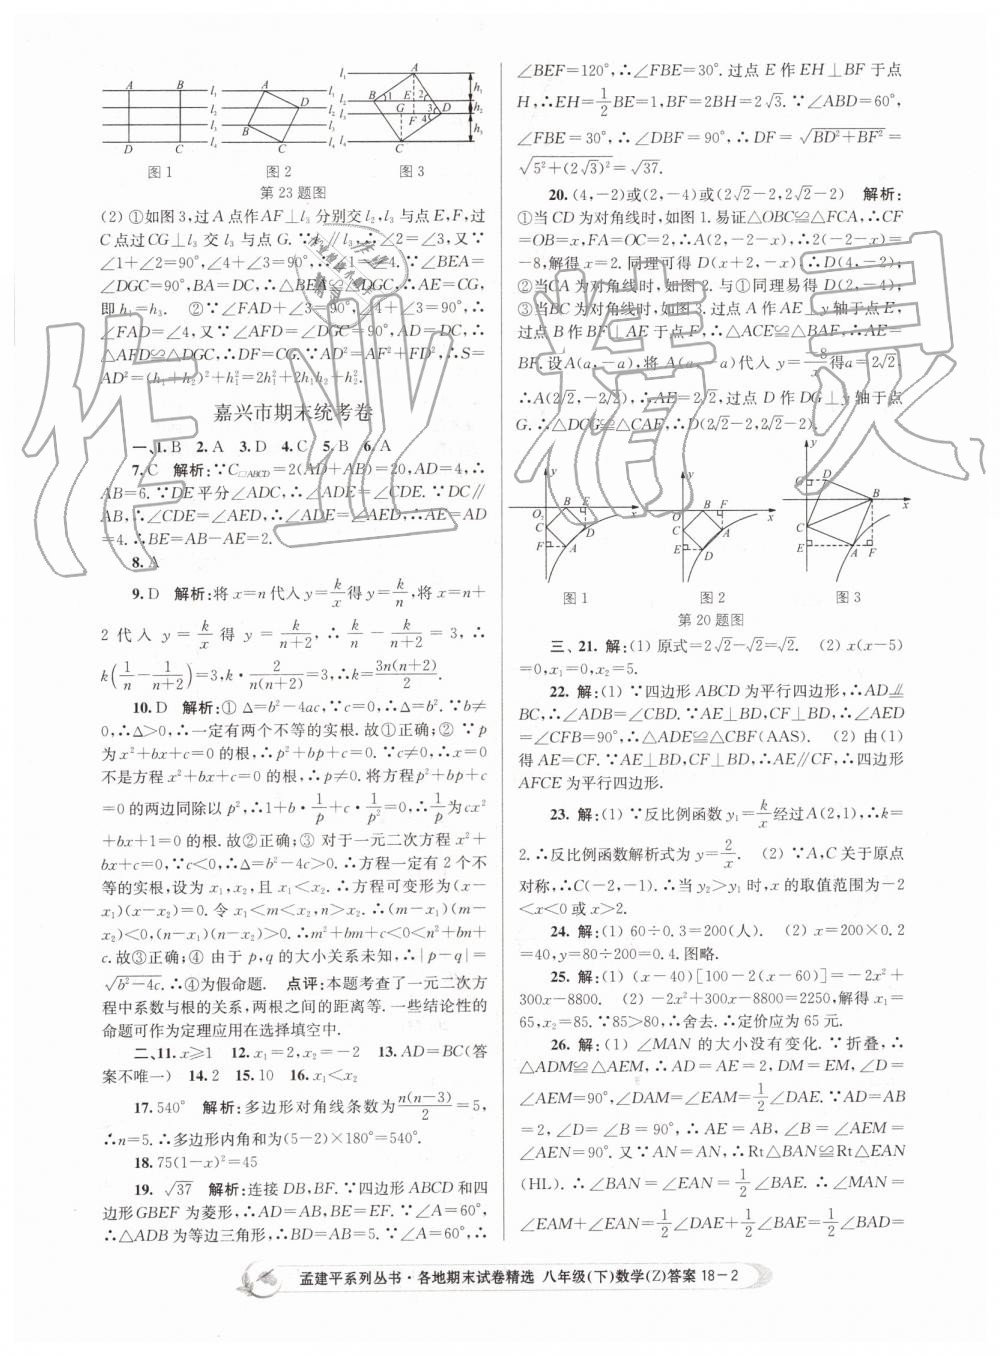 A B l₁
l₂
l₃
D C l₄
图 1
A l₁
D l₂
B l₃
C l₄
图 2
A l₁
B l₂
D l₃
C l₄
h₁ h₂ h₃
1 E 2 G 3 F 4
图 3
第 23 题图
(2) ①如图 3,过 A 点作 AF⊥l₃ 分别交 l₂,l₃ 与点 E,F,过
C 点过 CG⊥l₃ 交 l₃ 与点 G.∵l₂∥l₃,∴∠2=∠3,又∵
∠1+∠2=90°,∠4+∠3=90°,∴∠1=∠4.∵∠BEA=
∠DGC=90°,BA=DC,∴△BEA≌△DGC,∴AE=CG,
即 h₁=h₃. ②∵∠FAD+∠3=90°,∠4+∠3=90°,∴
∠FAD=∠4,又∵∠AFD=∠DGC=90°,AD=DC,∴
△AFD≌△DGC,∴DF=CG.∵AD²=AF²+FD²,∴S=
AD²=(h₁+h₂)²+h₁²=2h₁²+2h₁h₂+h₂².
嘉兴市期末统考卷
一、1. B 2. A 3. D 4. C 5. B 6. A
7. C 解析:∵C□ABCD=2(AD+AB)=20,AD=4,∴
AB=6.∵DE 平分∠ADC,∴∠ADE=∠CDE.∵DC∥
AB,∴∠CDE=∠AED,∴∠ADE=∠AED,∴AE=AD
=4.∴BE=AB-AE=2.
8. A
9. D 解析:将 x=n 代入 y=k/x 得 y=k/n,将 x=n+
2 代 入 y=k/x 得 y=k/(n+2),∴ k/n-k/(n+2)=3,∴
k(1/n-1/(n+2))=3,k·2/(n(n+2))=3,∴k=3n(n+2)/2.
10. D 解析:① Δ=b²-4ac,∵c=0,∴Δ=b².∵b≠
0,∴Δ>0,∴一定有两个不等的实根.故①正确;② ∵p
为 x²+bx+c=0 的根,∴p²+bp+c=0.∵c≠0,∴x=0
不是方程 x²+bx+c=0 的根,∴p≠0.将方程 p²+bp+c
=0 的两边同除以 p²,∴1+b·1/p+c·1/p²=0,∴1/p为 cx²
+bx+1=0 的根.故②正确;③ 对于一元二次方程 x²+
bx+c=0,∵c<0,∴Δ=b²-4c>0.∴方程一定有 2 个不
等的实根,设为 x₁,x₂,且 x₁<x₂.∴方程可变形为(x-
x₁)(x-x₂)=0.令 x₁<m<x₂,n>x₂.∴(m-x₁)(m-
x₂)<0,(n-x₁)(n-x₂)>0.∴m²+bm+c<0<n²+bn+
c.故③正确;④ 由于 p,q 的大小关系未知,∴|p-q|=
√(b²-4c).∴④为假命题. 点评:本题考查了一元二次方
程中系数与根的关系,两根之间的距离等.一些结论性的
命题可作为定理应用在选择填空中.
二、11. x≥1 12. x₁=2,x₂=-2 13. AD=BC(答
案不唯一) 14. 2 15. 10 16. x₁<x₂
17. 540° 解析:多边形对角线条数为n(n-3)/2=5,
∴n=5.∴多边形内角和为(5-2)×180°=540°.
18. 75(1-x)²=45
19. √37 解析:连接 DB,BF.∵四边形 ABCD 和四
边形 GBEF 为菱形,∴AD=AB,BE=EF.∵∠A=60°,
∴△ADB 为等边三角形,∴BD=AB=5.∵∠A=60°,∴
∠BEF=120°,∴∠FBE=30°.过点 E 作 EH⊥BF 于点
H,∴EH=1/2BE=1,BF=2BH=2√3.∵∠ABD=60°,
∠FBE = 30°,∴∠DBF = 90°,∴DF = √(BD²+BF²) =
√(5²+(2√3)²)=√37.
20. (4,-2)或(2,-4)或(2√2-2,2√2-2) 解析:
①当 CD 为对角线时,如图 1.易证△OBC≌△FCA,∴CF
=OB=x,FA=OC=2,∴A(2,-2-x),∴2(-2-x)=
-8,解得 x=2.同理可得 D(x+2,-x),∴D(4,-2);
②当CA 为对角线时,如图 2.与①同理易得 D(2,-4);
③当BC 为对角线时,如图 3.过点 A 作 AE⊥y 轴于点 E,
过点 B 作 BF⊥AE 于点 F,∴△ACE≌△BAF,∴AE=
BF.设A(a,-a),将 A(a,-a)代入 y=-8/x得a=2√2.
∴A(2√2,-2√2),∴AE=2√2,过点 D 作 DG⊥y 轴于点
G.∴△DCG≌△CAE,∴D(2√2-2,2√2-2).
y
O B E x
C D
F A
图 1
y
O B F x
C A
E D
图 2
y
G D
B x
C
E A F
图 3
第 20 题图
三、21. 解:(1) 原式=2√2-√2=√2. (2) x(x-5)
=0,x₁=0,x₂=5.
22. 解:(1) ∵四边形 ABCD 为平行四边形,∴AD⫽
BC,∴∠ADB=∠CBD.∵AE⊥BD,CF⊥BD,∴∠AED
=∠CFB=90°,∴△ADE≌△CBF(AAS). (2) 由(1)
得 AE=CF.∵AE⊥BD,CF⊥BD,∴AE∥CF,∴四边形
AFCE 为平行四边形.
23. 解:(1) ∵反比例函数 y₁=k/x经过 A(2,1),∴k=
2.∴反比例函数解析式为 y=2/x. (2) ∵A,C 关于原点
对称,∴C(-2,-1).∴当 y₂>y₁ 时,x 的取值范围为-2
<x<0 或 x>2.
24. 解:(1) 60÷0.3=200(人). (2) x=200×0.2
=40,y=80÷200=0.4.图略.
25. 解:(1) (x-40)[100-2(x-60)]=-2x²+
300x-8800. (2) -2x²+300x-8800=2250,解得 x₁=
65,x₂=85.∵85>80,∴舍去.∴定价应为 65 元.
26. 解:(1) ∠MAN 的大小没有变化.∵折叠,∴
△ADM≌△AEM,∴AD = AE = 2,DM = EM,∠D =
∠AEM=90°,∠DAM=∠EAM=1/2∠DAE.∵AD=AB
=2,∠D=∠B=90°,∴AE=AB,∠B=∠AEM=
∠AEN=90°.又∵AN=AN,∴Rt△BAN≌Rt△EAN
(HL).∴∠BAN=∠EAN=1/2∠BAE.∴∠MAN=
∠EAM+∠EAN=1/2∠DAE+1/2∠BAE=1/2∠BAD=
孟建平系列丛书·各地期末试卷精选 八年级(下)数学(Z)答案 18-2
作业精灵